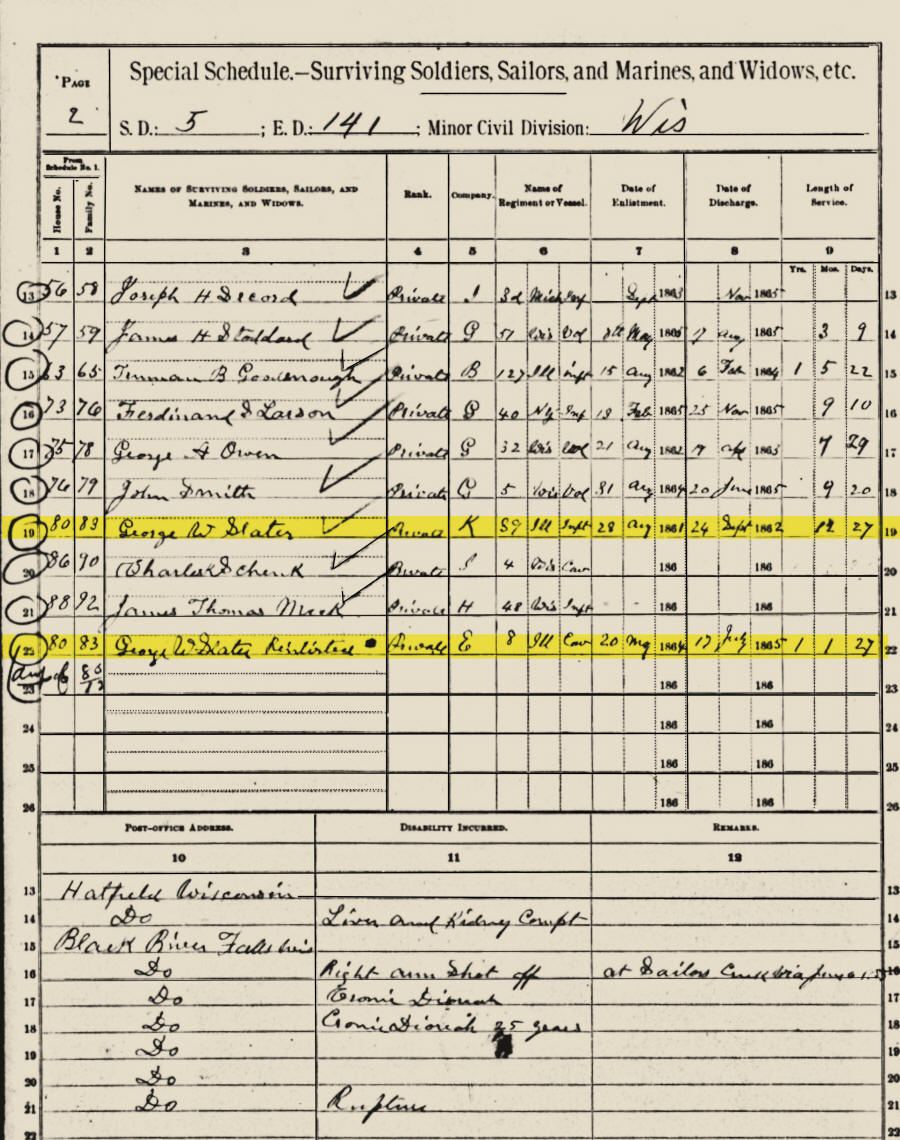 Special Schedule.—Surviving Soldiers, Sailors, and Marines, and Widows, etc.
PAGE
2
S. D.: 5 ; E. D.: 141 ; Minor Civil Division: Wis
From Schedule No. 1.
House No. Family No. NAMES OF SURVIVING SOLDIERS, SAILORS, AND MARINES, AND WIDOWS. Rank. Company. Name of Regiment or Vessel. Date of Enlistment. Date of Discharge. Length of Service.
1 2 3 4 5 6 7 8 9
Yrs. Mos. Days.
13 56 58 Joseph H Decord Private I 3d Mich Sept 1863 Nov 1865 13
14 57 59 James H Stoddard Private G 51 Wis Vol 8th May 1865 17 Aug 1865 3 9 14
15 63 65 Truman B Goodenough Private B 127 Ill inft 15 Aug 1862 6 Feb 1864 1 5 22 15
16 73 76 Ferdinand Larson Private G 40 NY Inf 18 Feb 1865 25 Nov 1865 9 10 16
17 75 78 George A Owen Private G 32 Wis Vol 21 Aug 1862 19 Apl 1863 7 29 17
18 76 79 John Smith Private G 5 Wis Vol 31 Aug 1864 20 June 1865 9 20 18
19 80 83 George W Slater Private K 59 Ill Inft 28 Aug 1861 24 Sept 1862 12 27 19
20 86 90 Schenk Private I 4 Wis Cav 186 186 20
21 88 92 James Thomas Meek Private H 48 Wis Inft 186 186 21
80 83 George W Slater Reinlisted Private E 8 Ill Cav 20 May 1864 17 July 1865 1 1 27 22
23 186 186 23
24 186 186 24
25 186 186 25
26 186 186 26
POST-OFFICE ADDRESS. DISABILITY INCURRED. REMARKS.
10 11 12
13 Hatfield Wisconsin 13
14 Do Liver and Kidney Compt 14
15 Black River Falls Wis 15
16 Do Right arm Shot off at Sailors Creek 16
17 Do Cronic Diorieah 17
18 Do Cronic Diorieah 25 years 18
19 Do 19
20 Do 20
21 Do Rupture 21
22 22